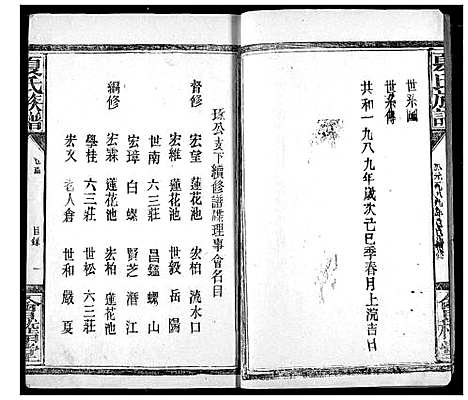 世系圖
世系傳
共和一九八九年歲次己巳季春月上浣吉日
琢公支下續修譜牒理事會名目
督修
宏望 蓮花池 宏柏 流水口
宏維 蓮花池 世毅 岳陽
世南 六三莊 昌鎰 螺山
宏璋 白螺 賢芝 潛江
編修
宏霖 蓮花池 宏柏 蓮花池
學桂 六三莊 世松 六三莊
宏文 老人倉 世和 嚴夏
夏氏族譜
目錄
一
會
堂
夏氏族譜
會
堂